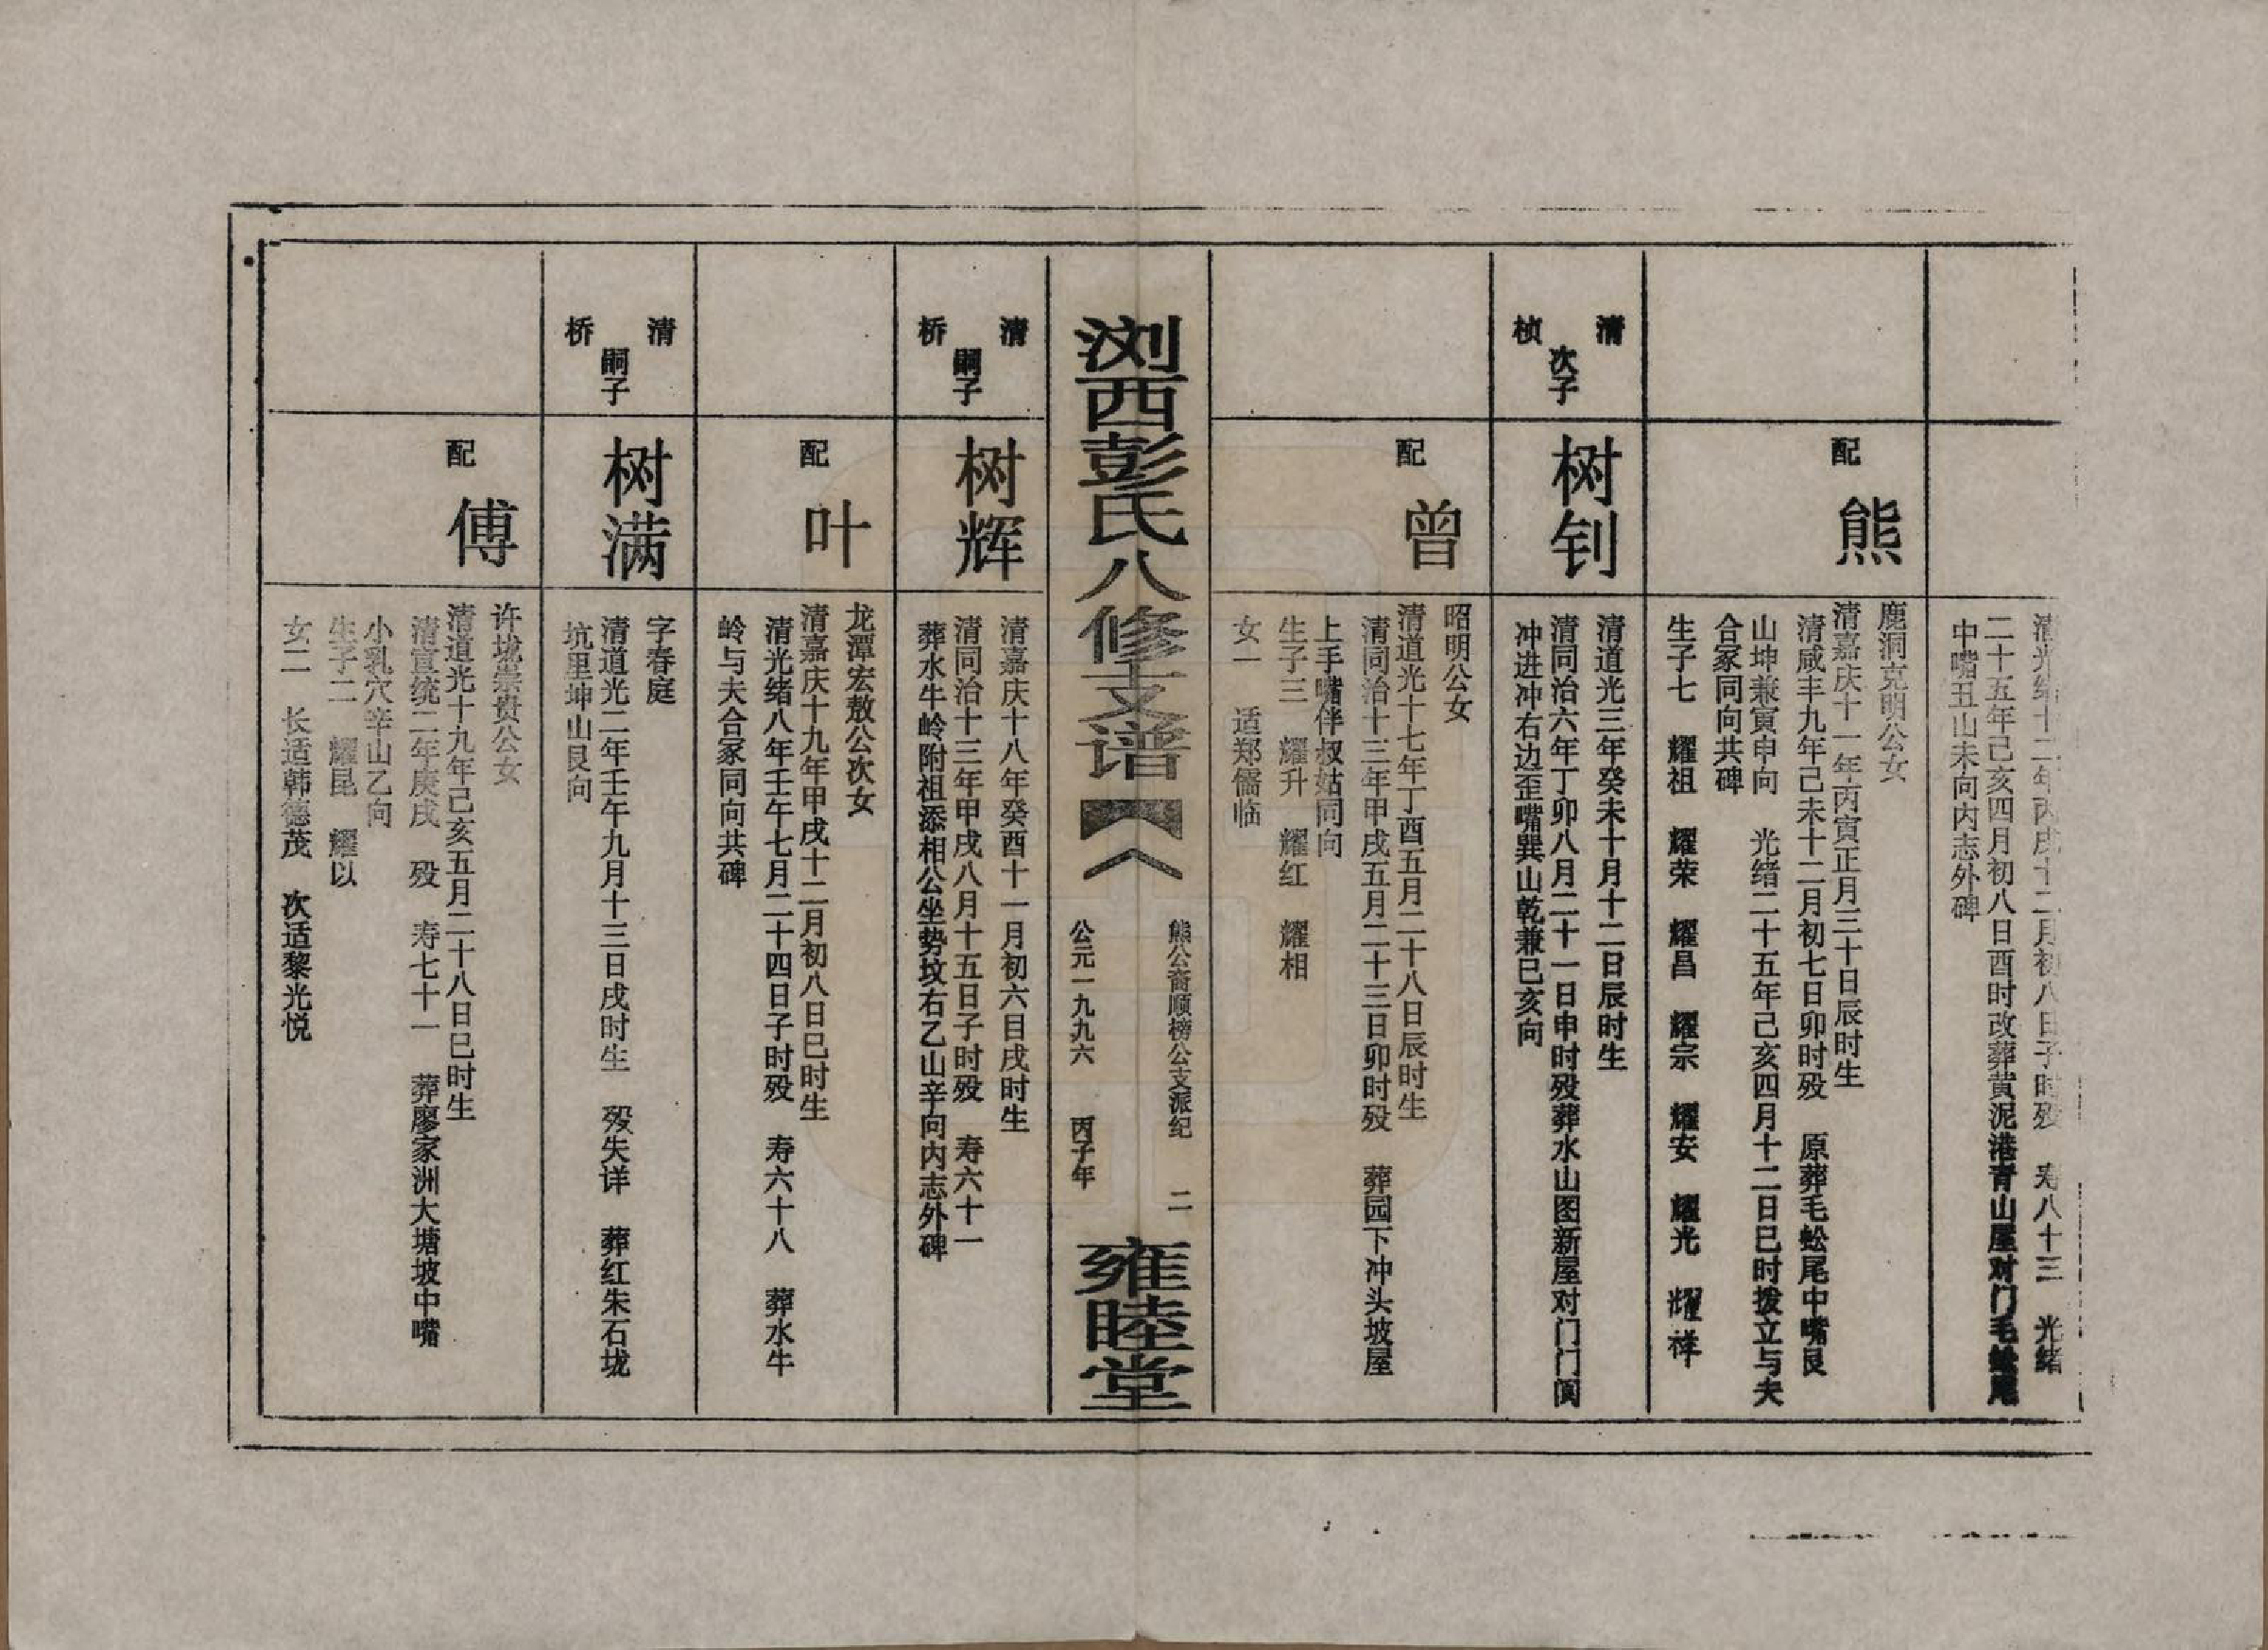 清光绪十二年丙戌十二月初八日子时殁　寿八十三　光绪
二十五年己亥四月初八日酉时改葬黄泥港青山屋对门毛蚣尾
中嘴丑山未向内志外碑
配　熊
鹿洞克明公女
清嘉庆十一年丙寅正月三十日辰时生
清咸丰九年己未十二月初七日卯时殁　原葬毛蚣尾中嘴艮
山坤兼寅申向　光绪二十五年己亥四月十二日巳时拨立与夫
合冢同向共碑
生子七　耀祖　耀荣　耀昌　耀宗　耀安　耀光　耀祥
清桢次子
树钊
清道光三年癸未十月十二日辰时生
清同治六年丁卯八月二十一日申时殁葬水山图新屋对门门阆
冲进冲右边歪嘴巽山乾兼巳亥向
配　曾
昭明公女
清道光十七年丁酉五月二十八日辰时生
清同治十三年甲戌五月二十三日卯时殁　葬园下冲头坡屋
上手嘴伴叔姑同向
生子三　耀升　耀红　耀相
女一　适郑儒临
浏西彭氏八修支谱
熊公裔顺榜公支派纪　二
公元一九九六　丙子年
雍睦堂
清桥嗣子
树辉
清嘉庆十八年癸酉十一月初六目戌时生
清同治十三年甲戌八月十五日子时殁　寿六十一
葬水牛岭附祖添相公坐势坟右乙山辛向内志外碑
配　叶
龙潭宏敖公次女
清嘉庆十九年甲戌十二月初八日巳时生
清光绪八年壬午七月二十四日子时殁　寿六十八　葬水牛
岭与夫合冢同向共碑
清桥嗣子
树满
字春庭
清道光二年壬午九月十三日戌时生　殁失详　葬红朱石垅
坑里坤山艮向
配　傅
许垅崇贵公女
清道光十九年己亥五月二十八日巳时生
清宣统二年庚戌　殁　寿七十一　葬廖家洲大塘坡中嘴
小乳穴辛山乙向
生子二　耀昆　耀以
女二　长适韩德茂　次适黎光悦